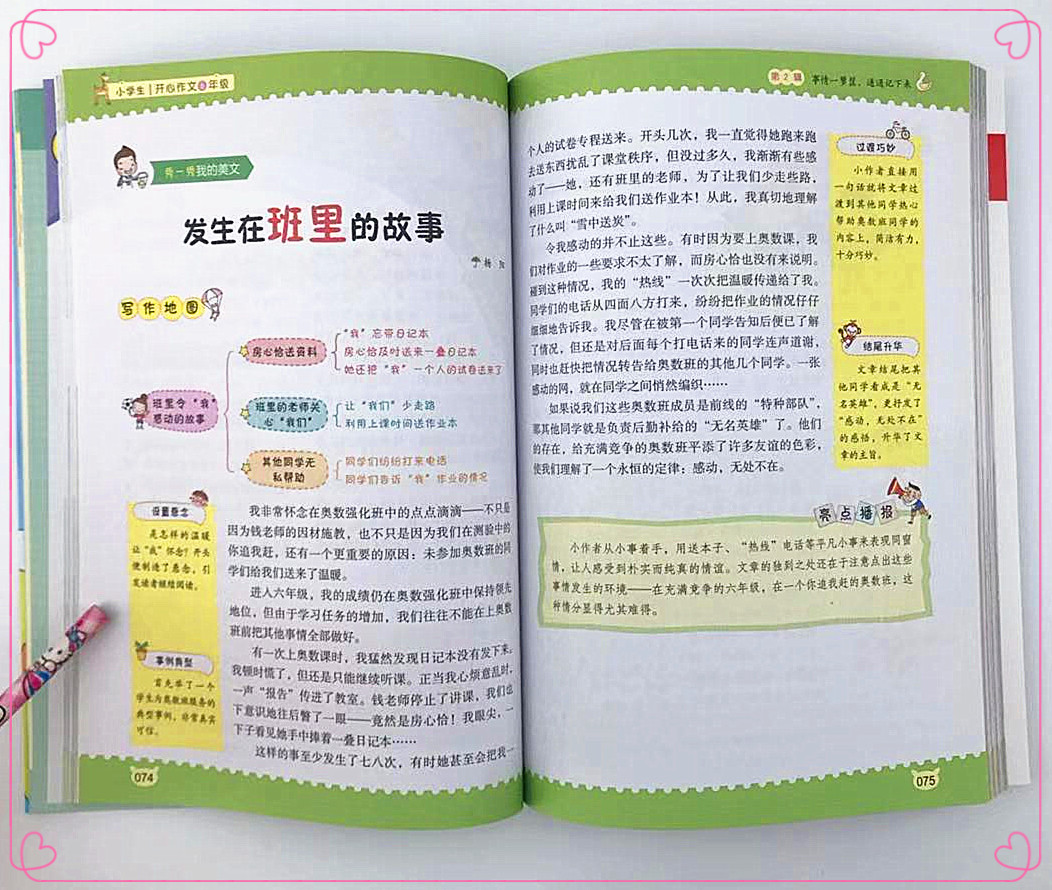 小学生|开心作文6年级
秀一秀我的美文
发生在班里的故事
杨
写作地图
班里令“我”
感动的故事
房心怡送资料
“我”忘带日记本
房心怡及时送来一叠日记本
她还把“我”一个人的试卷送来了
班里的老师关
心“我们”
让“我们”少走路
利用上课时间送作业本
其他同学无
私帮助
同学们纷纷打来电话
同学们告诉“我”作业的情况
设置悬念
是怎样的温暖
让“我”怀念？开头
便制造了悬念，引
发读者继续阅读。
事例典型
首先举了一个
学生为奥数班服务的
典型事例，非常真实
可信。
我非常怀念在奥数强化班中的点点滴滴——不只是
因为钱老师的因材施教，也不只是因为我们在测验中的
你追我赶，还有一个更重要的原因：未参加奥数班的同
学们给我们送来了温暖。
进入六年级，我的成绩仍在奥数强化班中保持领先
地位，但由于学习任务的增加，我们往往不能在上奥数
班前把其他事情全部做好。
有一次上奥数课时，我猛然发现日记本没有发下来。
我顿时慌了，但还是只能继续听课。正当我心烦意乱时，
一声“报告”传进了教室。钱老师停止了讲课，我们也
下意识地往后瞥了一眼——竟然是房心怡！我眼尖，一
下子看见她手中捧着一叠日记本……
这样的事至少发生了七八次，有时她甚至会把我一
074
第2辑 事情一箩筐，通通记下来
个人的试卷专程送来。开头几次，我一直觉得她跑来跑
去送东西扰乱了课堂秩序，但没过多久，我渐渐有些感
动了——她，还有班里的老师，为了让我们少走些路，
利用上课时间来给我们送作业本！从此，我真切地理解
了什么叫“雪中送炭”。
令我感动的并不止这些。有时因为要上奥数课，我
们对作业的一些要求不太了解，而房心怡也没有来说明。
碰到这种情况，我的“热线”一次次把温暖传递给了我。
同学们的电话从四面八方打来，纷纷把作业的情况仔仔
细细地告诉我。我尽管在被第一个同学告知后便已了解
了情况，但还是对后面每个打电话来的同学连声道谢，
同时也赶快把情况转告给奥数班的其他几个同学。一张
感动的网，就在同学之间悄然编织……
如果说我们这些奥数班成员是前线的“特种部队”，
那其他同学就是负责后勤补给的“无名英雄”了。他们
的存在，给充满竞争的奥数班平添了许多友谊的色彩，
使我们理解了一个永恒的定律：感动，无处不在。
过渡巧妙
小作者直接用
一句话就将文章过
渡到其他同学热心
帮助奥数班同学的
内容上，简洁有力，
十分巧妙。
结尾升华
文章结尾把其
他同学看成是“无
名英雄”，更抒发了
“感动，无处不在”
的感悟，升华了文
章的主旨。
亮点播报
小作者从小事着手，用送本子、“热线”电话等平凡小事来表现同窗
情，让人感受到朴实而纯真的情谊。文章的独到之处还在于注意点出这些
事情发生的环境——在充满竞争的六年级，在一个你追我赶的奥数班，这
种情分显得尤其难得。
075